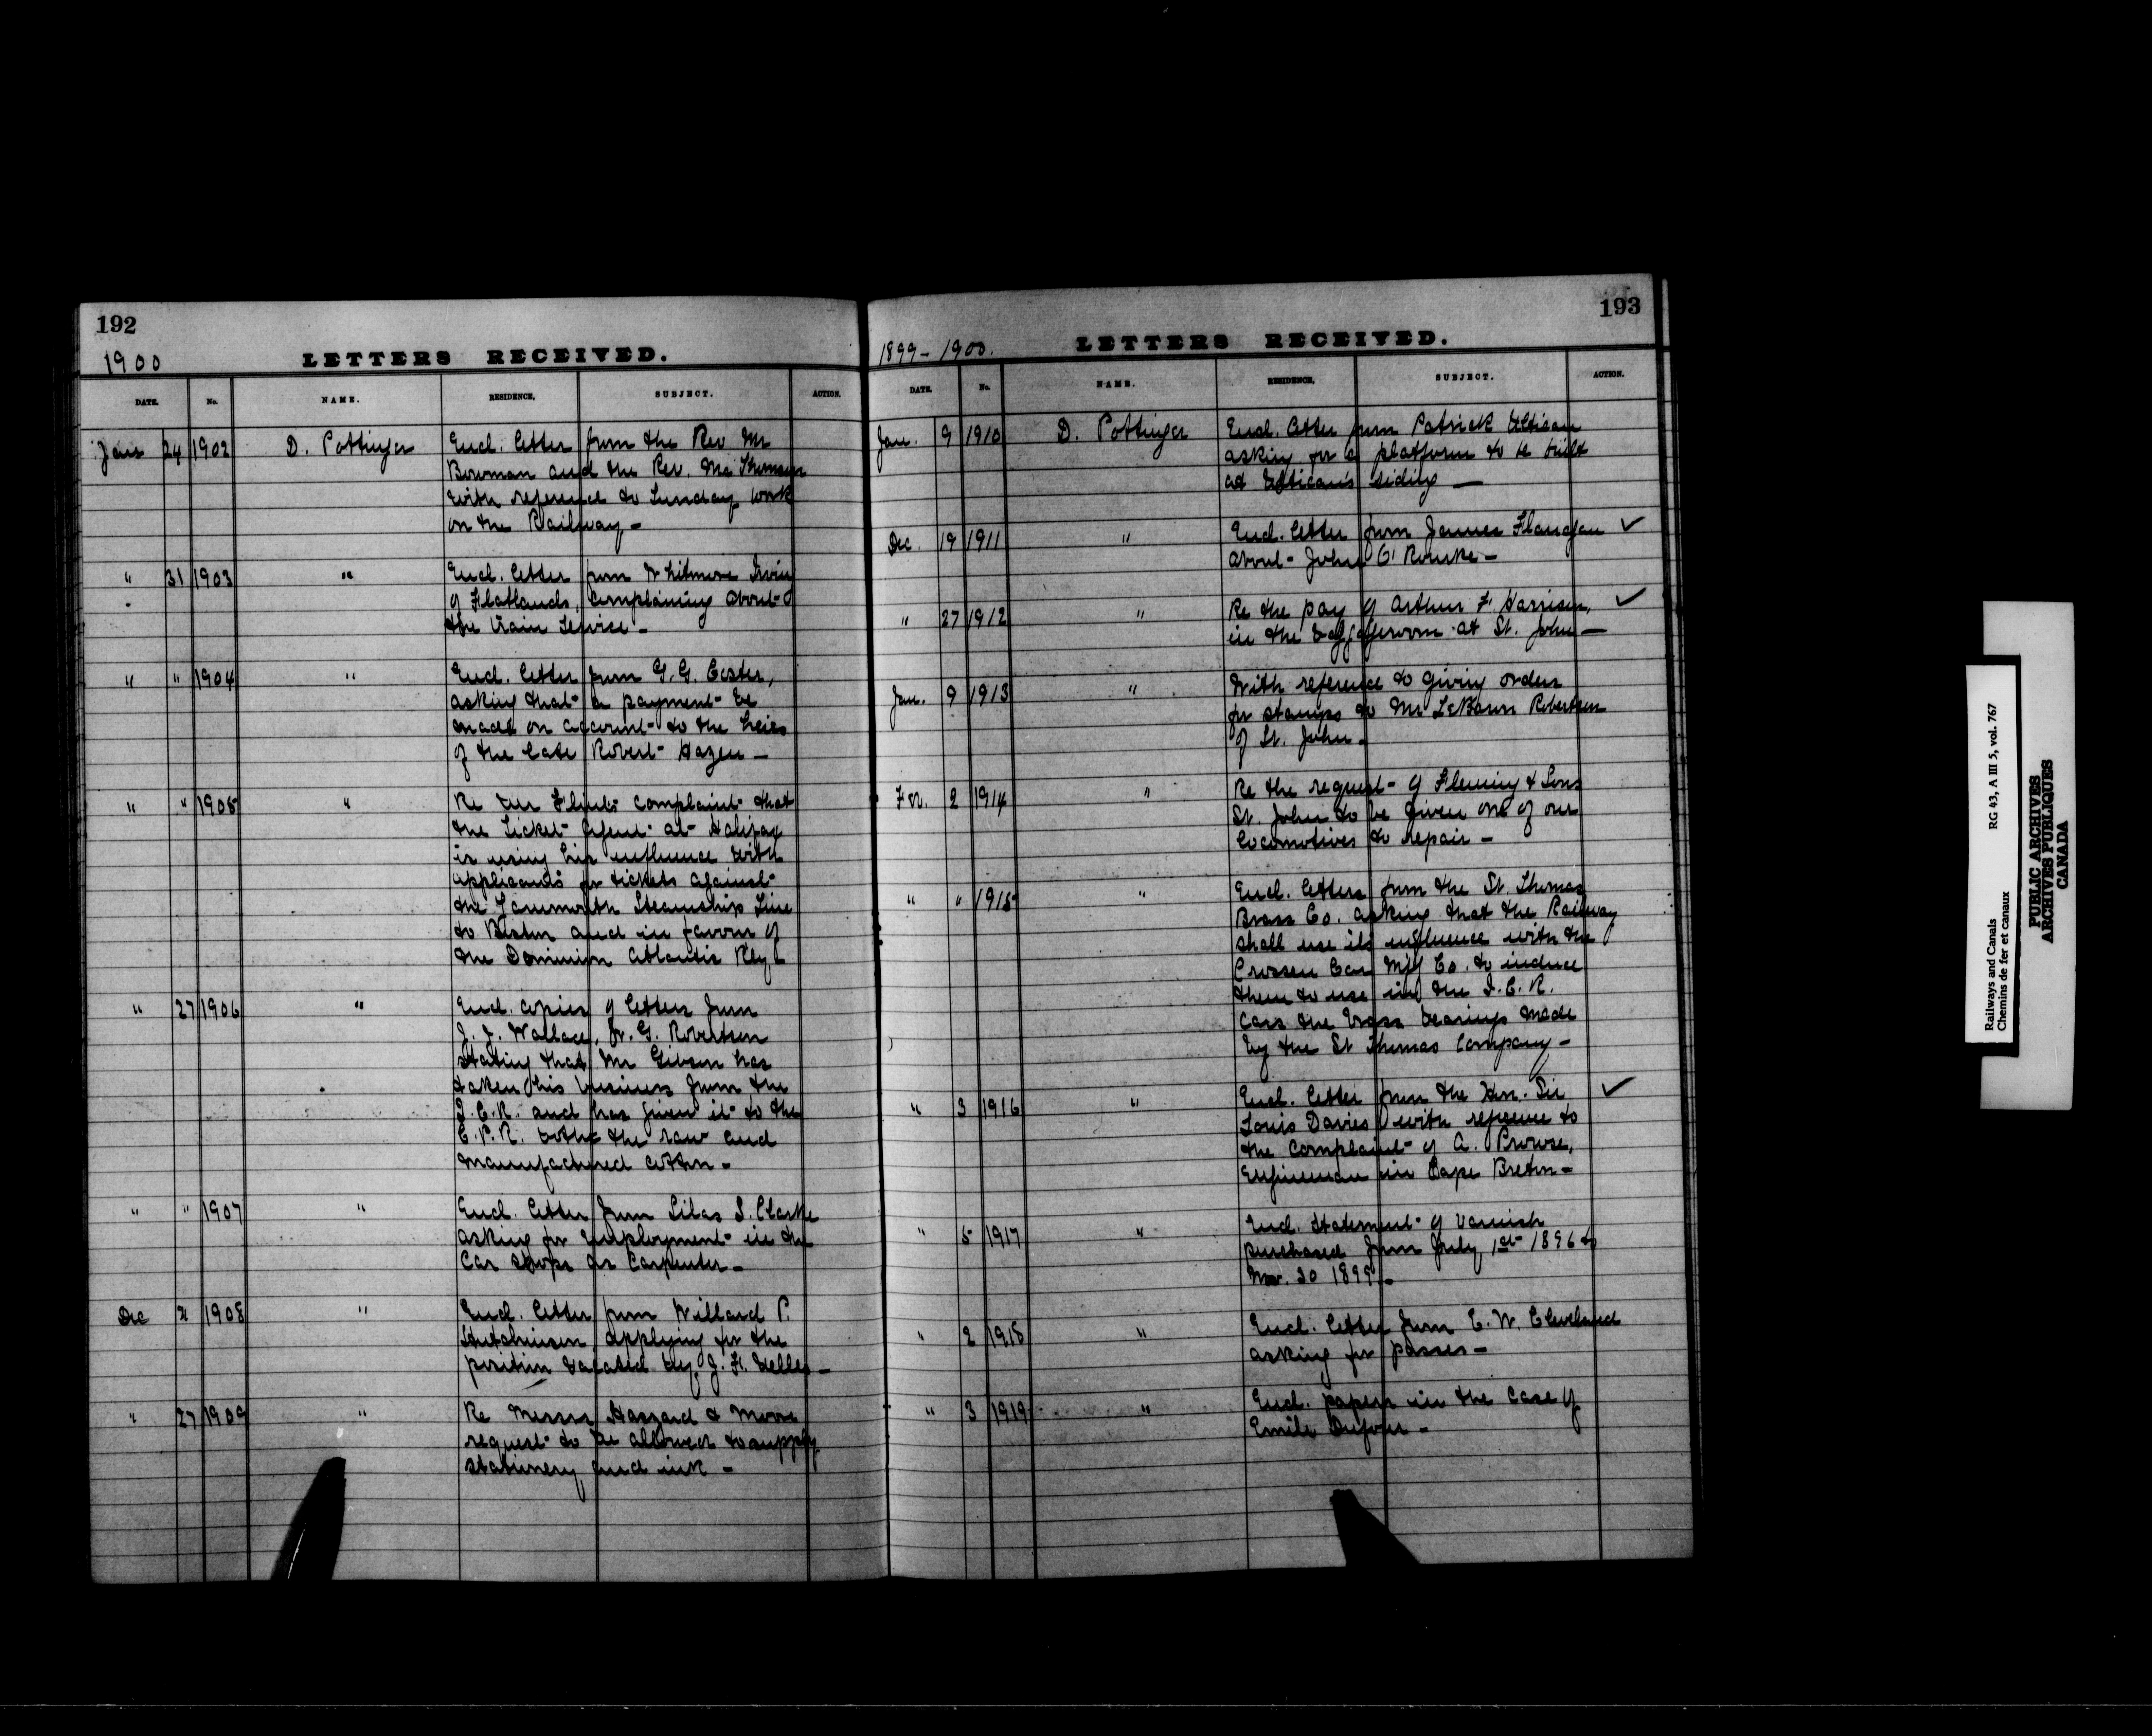 192
1900
LETTERS RECEIVED.
DATE. No. NAME. RESIDENCE. SUBJECT. ACTION.
Jan 24 1902 D. Pottinger Encl. letter from the Rev Mr
Bowman and the Rev. Mr Thomson
with reference to Sunday work
on the Railway -
" 31 1903 " Encl. letter from Whitmore Irving
of Flatlands, complaining about
the train service -
" " 1904 " Encl. letter from G. G.
asking that a payment be
made on account to the heirs
of the late Robert Hazen -
" " 1905 " Re complaint that
the Ticket Agent at Halifax
is using his influence with
applicants for tickets against
the Yarmouth Steamship Line
to Boston and in favour of
the Dominion Atlantic Rly -
" 27 1906 " Encl. copies of letters from
J. J. Wallace, & G. Robertson
stating that Mr Gibson has
taken his business from the
I.C.R. and has given it to the
C.P.R. both the raw and
manufactured cotton -
" " 1907 " Encl. letter from Silas S. Clarke
asking for employment in the
Car shops as Carpenter -
Dec 1908 " Encl. letter from Willard P.
Hutchinson applying for the
position vacated by J. F.
" 27 1909 " Re Messrs Haszard & Moore
request to be allowed to supply
stationery and ink -
193
1899-1900.
LETTERS RECEIVED.
DATE. No. NAME. RESIDENCE. SUBJECT. ACTION.
Jan. 9 1910 D. Pottinger Encl. letter from Patrick
asking for a platform to be built
at siding -
Dec. 19 1911 " Encl. letter from James Flanagan ✓
about John O'Rourke -
" 27 1912 " Re the pay of Arthur F. Harrison, ✓
in the baggageroom at St. John -
Jan. 9 1913 " With reference to giving orders
for stamps to Mr LeBaron Robertson
of St. John -
2 1914 " Re the request of Fleming & Sons
St. John to be given one of our
locomotives to repair -
" " 1915 " Encl. letters from the St. Thomas
Brass Co. asking that the Railway
shall use its influence with the
Crossen Car Mfg Co. to induce
them to use in the I.C.R.
cars the brass bearings made
by the St Thomas Company -
" 3 1916 " Encl. letter from the Hon. Sir ✓
Louis Davies with reference to
the complaint of A. Prowse,
Engineman in Cape Breton -
" 5 1917 " Encl. statement of varnish
purchased from July 1st 1896 to
Nov. 30 1899 -
" 2 1918 " Encl. letter from E. W. Cleveland
asking for passes -
" 3 1919 " Encl. papers in the case of
Emile Dufour -
Railways and Canals RG 43, A III 5, vol. 767
Chemins de fer et canaux
PUBLIC ARCHIVES
ARCHIVES PUBLIQUES
CANADA